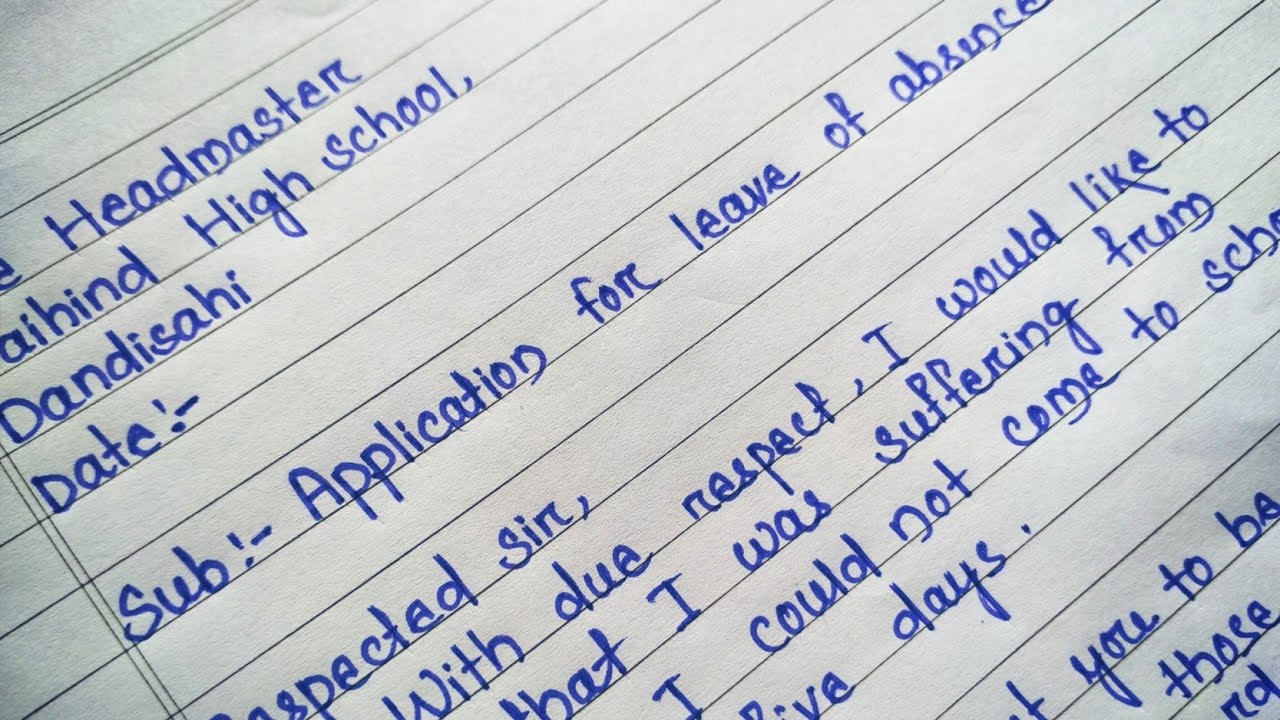 Headmaster
High school,
Dandisahi
Date:-
Sub:- Application for leave of absence
sir,
With due respect, I would like to
that I was suffering from
I could not come to
days.
you to be
those